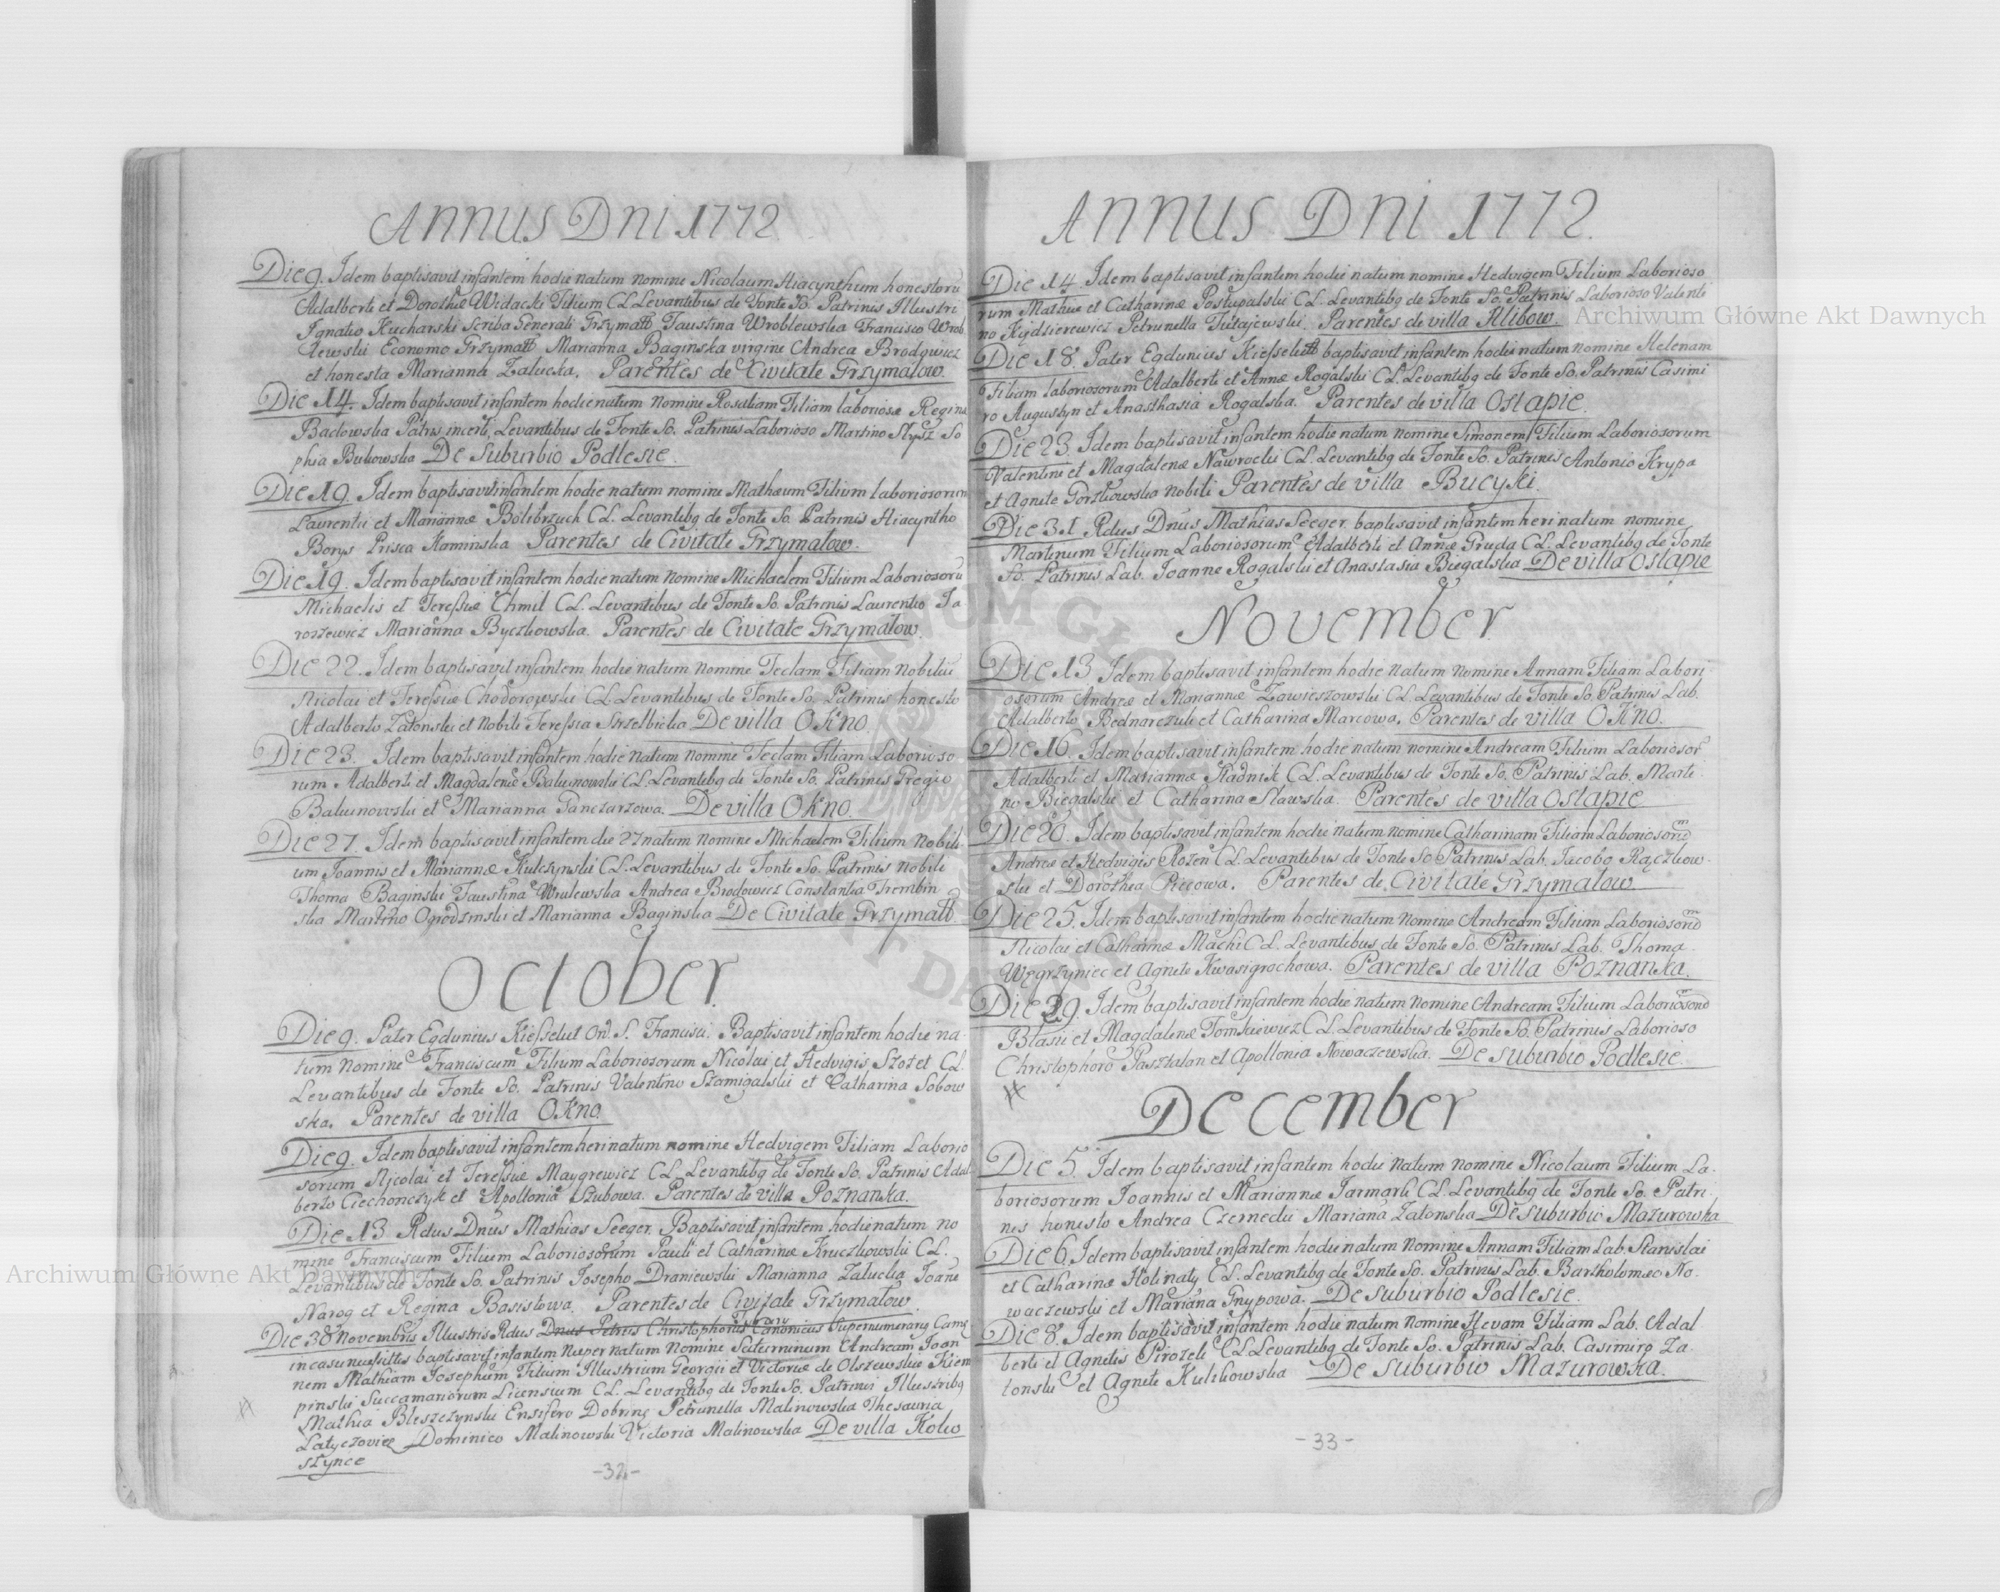 ANNUS DNI 1772
Die 9. Idem baptisavit infantem hodie natum nomine Nicolaum Hiacynthum honestorũ
Adalberti et Dorothæ Widacki Filium C.L. Levantibus de Fonte So. Patrinis Illustri
Ignatio Kucharski Scriba Generali Grzymałł Faustina Wroblewska Francisco Wrob
lewski Economo Grzymałł Marianna Baginska virgine Andrea Brodowicz
et honesta Marianna Zalucka. Parentes de Civitate Grzymałow.
Die 14. Idem baptisavit infantem hodie natum nomine Rosaliam Filiam laboriosæ Reginæ
Badowska Patris incerti, Levantibus de Fonte So. Patrinis Laborioso Martino Słysz So
phia Bukowska De Suburbio Podlesie.
Die 19. Idem baptisavit infantem hodie natum nomine Mathæum Filium laboriosorum
Laurentii et Mariannæ Bolibrzuch C.L. Levantibq de Fonte So. Patrinis Hiacyntho
Borys Prisca Kaminska Parentes de Civitate Grzymałow.
Die 19. Idem baptisavit infantem hodie natum nomine Michaelem Filium Laboriosorũ
Michaelis et Teressiæ Chmil C.L. Levantibus de Fonte So. Patrinis Laurentio Ja
roszewicz Marianna Byczkowska. Parentes de Civitate Grzymałow.
Die 22. Idem baptisavit infantem hodie natum nomine Teclam Filiam Nobiliũ
Nicolai et Teressiæ Chodorowski C.L. Levantibus de Fonte So. Patrinis honesto
Adalberto Zatonski et Nobili Teressia Strzelbicka De villa OKno.
Die 23. Idem baptisavit infantem hodie natum nomine Teclam Filiam Laborioso
rum Adalberti et Magdalenæ Bakunowski C.L. Levantibq de Fonte So. Patrinis Gregio
Bakunowski et Marianna Ganczarzowa. De villa OKno.
Die 27. Idem baptisavit infantem die 27 natum nomine Michaelem Filium Nobili
um Joannis et Mariannæ Kulczynski C.L. Levantibus de Fonte So. Patrinis Nobile
Thoma Baginski Faustina Wrulewska Andrea Brodowicz Constantia Trembin
ska Martino Ogrodzinski et Marianna Baginska De Civitate Grzymałł.
October.
Die 9. Pater Egdunius Kiesselut Ord. S. Francisci. Baptisavit infantem hodie na
tum nomine Franciscum Filium Laboriosorum Nicolai et Hedvigis Szot et C.L.
Levantibus de Fonte So. Patrinis Valentino Szamigalski et Catharina Sobow
ska. Parentes de villa OKno.
Die 9. Idem baptisavit infantem heri natum nomine Hedvigem Filiam Laborio
sorum Nicolai et Teressiæ Maygrewicz C.L. Levantibq de Fonte So. Patrinis Adal
berto Ciechomczyk et Apollonia Szubowa. Parentes de villa Poznanka.
Die 13 Rdus Dnus Mathias Seeger. Baptisavit infantem hodie natum no
mine Franciscum Filium Laboriosorum Pauli et Catharinæ Kruczkowski C.L.
Levantibus de Fonte So. Patrinis Josepho Draniewski Marianna Zalucka Joane
Narog et Regina Basistowa. Parentes de Civitate Grzymałow.
Die 30 Novembris Illustris Rdus Dnus Petrus Christophorus Canonicus Supernumerarq Came
in casu necessittis baptisavit infantem nuper natum nomine Saturninum Andream Joan
nem Mathiam Josephum Filium Illustrium Georgii et Victoriæ de Olszewskie Kiem
pinski Succamariorum Licensium C.L. Levantibq de Fonte So. Patrinis Illustribq
Mathia Bleszczynski Ensifero Dobrinę Petrunella Malinowska Thesauria
Latyczoviez Dominico Malinowski Victoria Malinowska De villa Koko
szynce
-32-
ANNUS DNI 1772.
Die 14. Idem baptisavit infantem hodie natum nomine Hedvigem Filium Laborioso
rum Mathiæ et Catharinæ Postupalski C.L. Levantibq de Fonte So. Patrinis Laborioso Valenti
no Kydzierewicz Petrunella Tutajewski. Parentes de villa Klibow.
Die 18. Pater Egdunius Kiesselut baptisavit infantem hodie natum nomine Helenam
Filiam laboriosorum Adalberti et Annæ Rogalski C.L. Levantibq de Fonte So. Patrinis Casimi
ro Augustyn et Anasthasia Rogalska. Parentes de villa Ostapie.
Die 23. Idem baptisavit infantem hodie natum nomine Simonem Filium Laboriosorum
Valentini et Magdalenæ Nawrocki C.L. Levantibq de Fonte So. Patrinis Antonio Krypa
et Agnete Gorzkowska Nobili Parentes de villa Bucyki.
Die 31. Rdus Dnus Mathias Seeger. baptisavit infantem heri natum nomine
Martinum Filium Laboriosorum Adalberti et Annæ Gruda C.L. Levantibq de Fonte
So. Patrinis Lab. Joanne Rogalski et Anastasia Biegalska De villa Ostapie
November
Die 13 Idem baptisavit infantem hodie natum nomine Annam Filiam Labori
osorum Andreæ et Mariannæ Zawieszowski C.L. Levantibus de Fonte So. Patrinis Lab.
Adalberto Bednarczuk et Catharina Marcowa. Parentes de villa OKno.
Die 16. Idem baptisavit infantem hodie natum nomine Andream Filium Laboriosor
Adalberti et Mariannæ Kadnik C.L. Levantibus de Fonte So. Patrinis Lab. Marti
no Biegalski et Catharina Slawska. Parentes de villa Ostapie
Die 20. Idem baptisavit infantem hodie natum nomine Catharinam Filiam Laboriosorũ
Andreæ et Hedvigis Rozen C.L. Levantibus de Fonte So Patrinis Lab. Jacobo Rączkow-
ski et Dorothea Picowa. Parentes de Civitate Grzymałow.
Die 25. Idem baptisavit infantem hodie natum nomine Andream Filium Laboriosorũ
Nicolai et Catharinæ Machi C.L. Levantibus de Fonte So. Patrinis Lab. Thoma
Węgrzyniec et Agnete Kwasigrochowa. Parentes de villa Poznanka.
Die 29. Idem baptisavit infantem hodie natum nomine Andream Filium Laboriosorũ
Blasii et Magdalenæ Tomkiewicz C.L. Levantibus de Fonte So. Patrinis Laborioso
Christophoro Pasztalan et Apollonia Nowaczewska. De Suburbio Podlesie.
December
Die 5. Idem baptisavit infantem hodie natum nomine Nicolaum Filium La-
boriosorum Joannis et Mariannæ Jarmark C.L. Levantibq de Fonte So. Patri
nis honesto Andrea Czernecki Mariana Zatonska De Suburbio Mazurowka
Die 6. Idem baptisavit infantem hodie natum nomine Annam Filiam Lab. Stanislai
et Catharinæ Holinaty C.L. Levantibq de Fonte So. Patrinis Lab. Bartholomæo No-
waczewski et Mariana Gnypowa. De Suburbio Podlesie.
Die 8. Idem baptisavit infantem hodie natum nomine Hevam Filiam Lab. Adal
berti et Agnetis Pirozek C.L. Levantibq de Fonte So. Patrinis Lab. Casimiro Za-
tonski et Agnete Kulikowska De Suburbio Mazurowka.
-33-
Archiwum Główne Akt Dawnych
Archiwum Główne Akt Dawnych